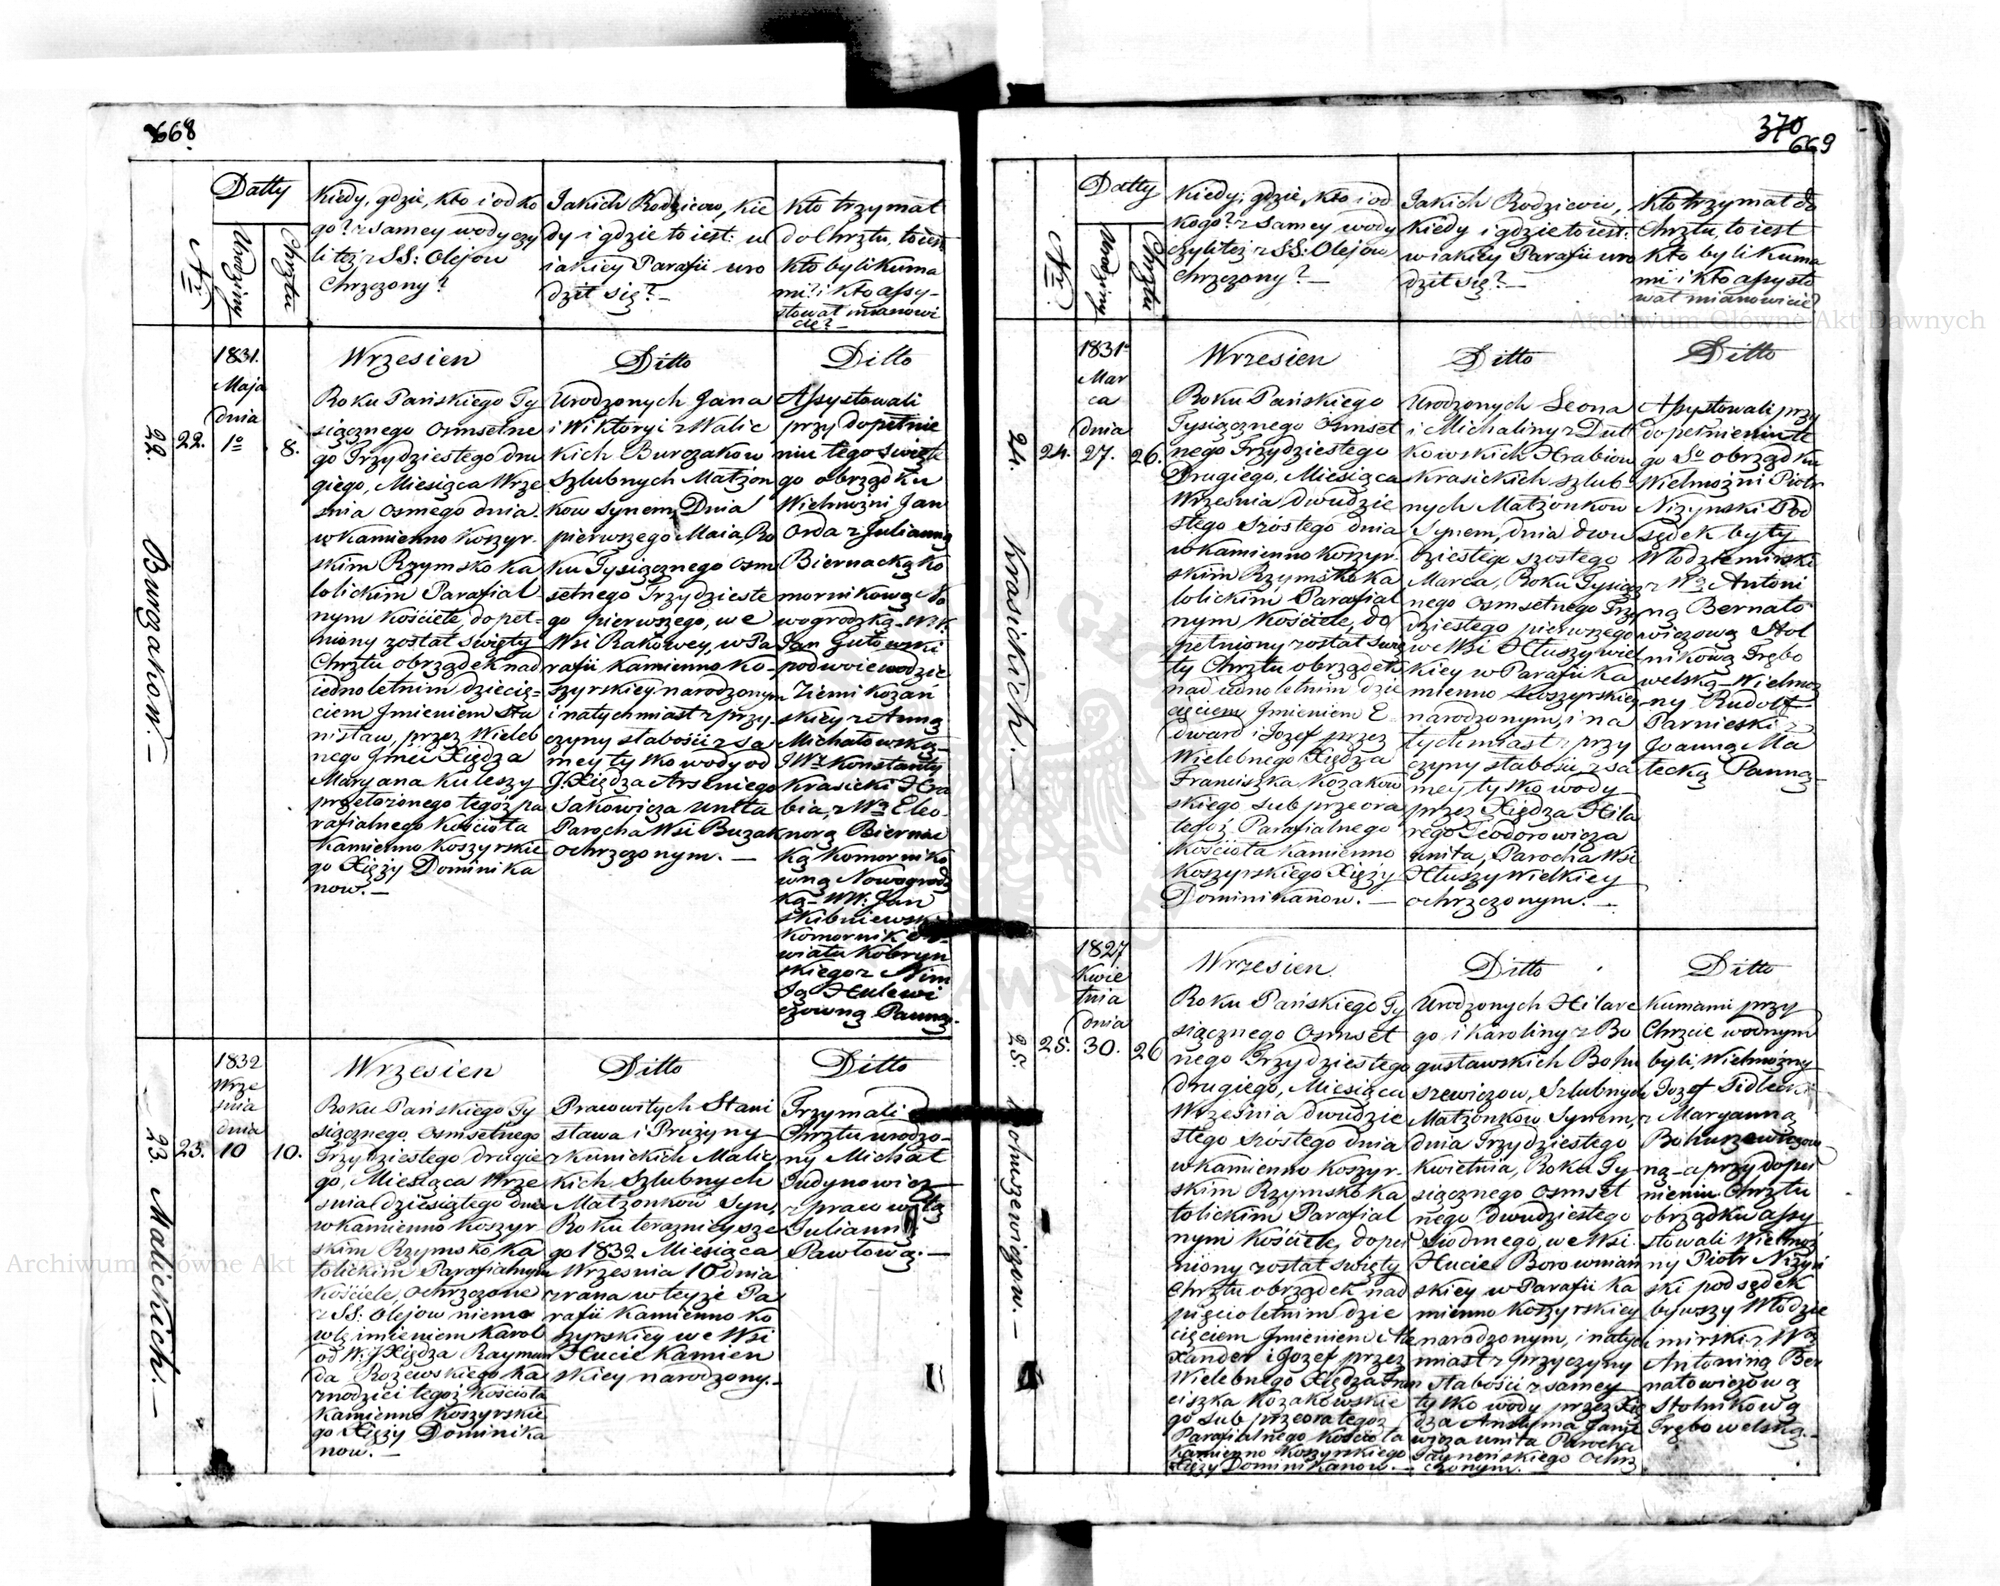 668
Datty
Nr
Urodziny
Chrztu
Kiedy, gdzie, kto i od ko
go? z samey wody czy
li też z SS: Olejow
Chrzczony?
Jakich Rodzicow, kie
dy i gdzie to iest: w
iakiey Parafii uro
dził się? —
Kto trzymał
do Chrztu, to iest
kto byli kuma
mi? i kto assy-
stował mianowi
cie? —
22. Burzakow. —
22.
1831.
Maja
dnia
1º
8.
Wrzesien
Roku Pańskiego Ty
siącznego Osmsetne
go Trzydziestego dru
giego, Miesiąca Wrze
śnia osmego dnia
w Kamienno Koszyr-
skim Rzymsko ka
tolickim Parafial
nym Kościele, dopeł-
niony został święty
Chrztu obrządek nad
iednoletnim dziecię-
ciem Jmieniem Sta
nisław, przez Wieleb
nego Jmci Xiędza
Maryana Kuleszy
przełożonego tegoż pa
rafialnego Kościoła
Kamienno Koszyrskie
go Xięży Dominika
now. —
Ditto
Urodzonych Jana
i Wiktoryi z Walic
kich Burzakow
Szlubnych Małżon
kow synem, Dnia
pierwszego Maia, Ro
ku Tysiącznego osm
setnego Trzydzieste
go pierwszego, we
Wsi Rakowey, w Pa
rafii Kamienno Ko-
szyrskiey narodzonym
i natychmiast z przy-
czyny słabości z sa
mey tylko wody od
J. Xiędza Arseniego
Sakowicza Unita
Parocha Wsi Buzak
ochrzczonym. —
Ditto
Assystowali
przy dopełnie
niu tego święte
go obrządku
Wielmożni Jan
Orda z Julianną
Biernacką Ko
mornikową No
wogrodzką. WW.
Jan Gutowski
podwoiewodzic
Ziemi Kożań
skiey z Anną
Michałowską
JWż Konstanty
Krasicki Hra
bia, z Wą Eleo-
norą Biernac
ką Komorniko
wną Nowogrodz
ką — WW: Jan
Skibniewski
Komornik Po-
wiatu Kobryn
skiego z Nim
fą Hulewi
czowną Panną.
23. Malickich. —
23.
1832
Wrze
śnia
dnia
10
10.
Wrzesien
Roku Pańskiego Ty
siącznego Osmsetnego
Trzydziestego drugie
go, Miesiąca Wrze
śnia dziesiątego dnia
w Kamienno Koszyr-
skim Rzymsko ka
tolickim Parafialnym
Kościele, ochrzczone
z SS: Olejow niemo
wlę imieniem Karol
od W: J Xiędza Raymun
da Rożewskiego Ka
znodziei tegoż Kościoła
Kamienno Koszyrskie
go Xięży Dominika
now. —
Ditto
Pracowitych Stani
sława i Prużyny
z Kunickich Malic
kich Szlubnych
Małżonkow Syn,
Roku teraznieysze
go 1832 Miesiąca
Wrzesnia 10 dnia
zrana w teyże Pa
rafii Kamienno Ko
szyrskiey we Wsi
Hucie Kamien
skiey narodzony. —
Ditto
Trzymali do
Chrztu urodzo-
ny Michał
Judynowicz
z pracowitą
Julianną
Pawłową. —
370
669
Datty
Nr
Urodziny
Chrztu
Kiedy, gdzie, kto i od
kogo? z samey wody
czyli też z SS: Olejow
Chrzczony? —
Jakich Rodzicow,
kiedy i gdzie to iest:
w iakiey Parafii uro
dził się? —
Kto trzymał do
Chrztu, to iest
kto byli kuma
mi i kto assysto
wał mianowicie?
24. Krasickich. —
24.
1831ᵒ
Mar
ca
dnia
27.
26.
Wrzesien
Roku Pańskiego
Tysiącznego Osmset
nego Trzydziestego
Drugiego, Miesiąca
Wrzesnia dwudzie
stego szóstego dnia
w Kamienno Koszyr-
skim Rzymsko ka
tolickim Parafial
nym Kościele, do
pełniony został świę
ty Chrztu obrządek
nad iednoletnim dzie
cięciem Jmieniem E-
dward i Jozef przez
Wielebnego Xiędza
Franciszka Kozakow
skiego Sub przeora
tegoż Parafialnego
Kościoła Kamienno
Koszyrskiego Xięży
Dominikanow. —
Ditto
Urodzonych Leona
i Michaliny z Dut
kowskich Hrabiow
Krasickich szlub-
nych Małżonkow
Synem, dnia dwu
dziestego szostego
Marca, Roku Tysiącz
nego Osmsetnego Trzy
dziestego pierwszego
we Wsi Hłuszy wiel
kiey w Parafii Ka
mienno Koszyrskiey
narodzonym, i na
tychmiast z przy
czyny słabości z sa
mey tylko wody
przez Xiędza Hila
rego Teodorowicza
unita, Parocha Wsi
Hłuszy Wielkiey
ochrzczonym. —
Ditto
Assystowali przy
dopełnieniu te
go Sº obrządku
Wielmożni Piotr
Niżynski Pod
sędek były
Włodzimirski
z Wą Antoni
ną Bernato
wiczową Stol
nikową Trębo
welską — Wielmoż
ny Rudolf
Parnieski z
Joanną Ma
łecką Panną —
25. Bohuszewiczow. —
25.
1827
Kwie
tnia
dnia
30.
26
Wrzesien
Roku Pańskiego Ty
siącznego Osmset
nego Trzydziestego
drugiego, Miesiąca
Września dwudzie
stego szóstego dnia
w Kamienno Koszyr-
skim Rzymsko ka
tolickim Parafial
nym Kościele, dopeł
niony został święty
Chrztu obrządek nad
pięcioletnim dzie
cięciem Jmieniem Ale
xander i Jozef przez
Wielebnego Xiędza Fran
ciszka Kozakowskie
go Sub przeora tegoż
Parafialnego Kościoła
Kamienno Koszyrskiego
Xięży Dominikanow. —
Ditto
Urodzonych Hilare
go i Karoliny z Bo
gusławskich Bohu
szewiczow, Szlubnych
Małżonkow Synem,
dnia Trzydziestego
Kwietnia, Roku Ty
siącznego Osmset
nego dwudziestego
Siodmego, we Wsi
Hucie Borowniań
skiey w Parafii Ka
mienno Koszyrskiey
narodzonym, i natych
miast z przyczyny
słabości z samey
tylko wody przez Xię
dza Anzelma Janie
wicza unita Parocha
ochrz
czonym. —
Ditto
Kumami przy
Chrzcie wodnym
byli Wielmożny
Jozef Sidlecki
z Maryanną
Bohuszewiczow
ną — a przy dopeł
nieniu Chrztu
obrządku assy
stowali Wielmoż
ny Piotr Niżyń
ski podsędek
bywszy Włodzi
mirski z Wą
Antoniną Ber
natowiczową
Stolnikową
Trębowelską. —
Archiwum Główne Akt Dawnych
Archiwum Główne Akt Dawnych